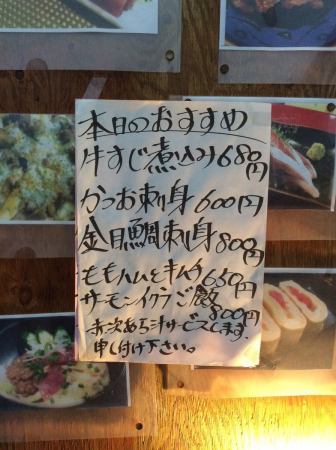 本日のおすすめ
牛すじ煮込み680円
かつお刺身600円
金目鯛刺身800円
ももハムとキムチ650円
サーモンイクラご飯800円
あら汁サービスします。
申し付け下さい。